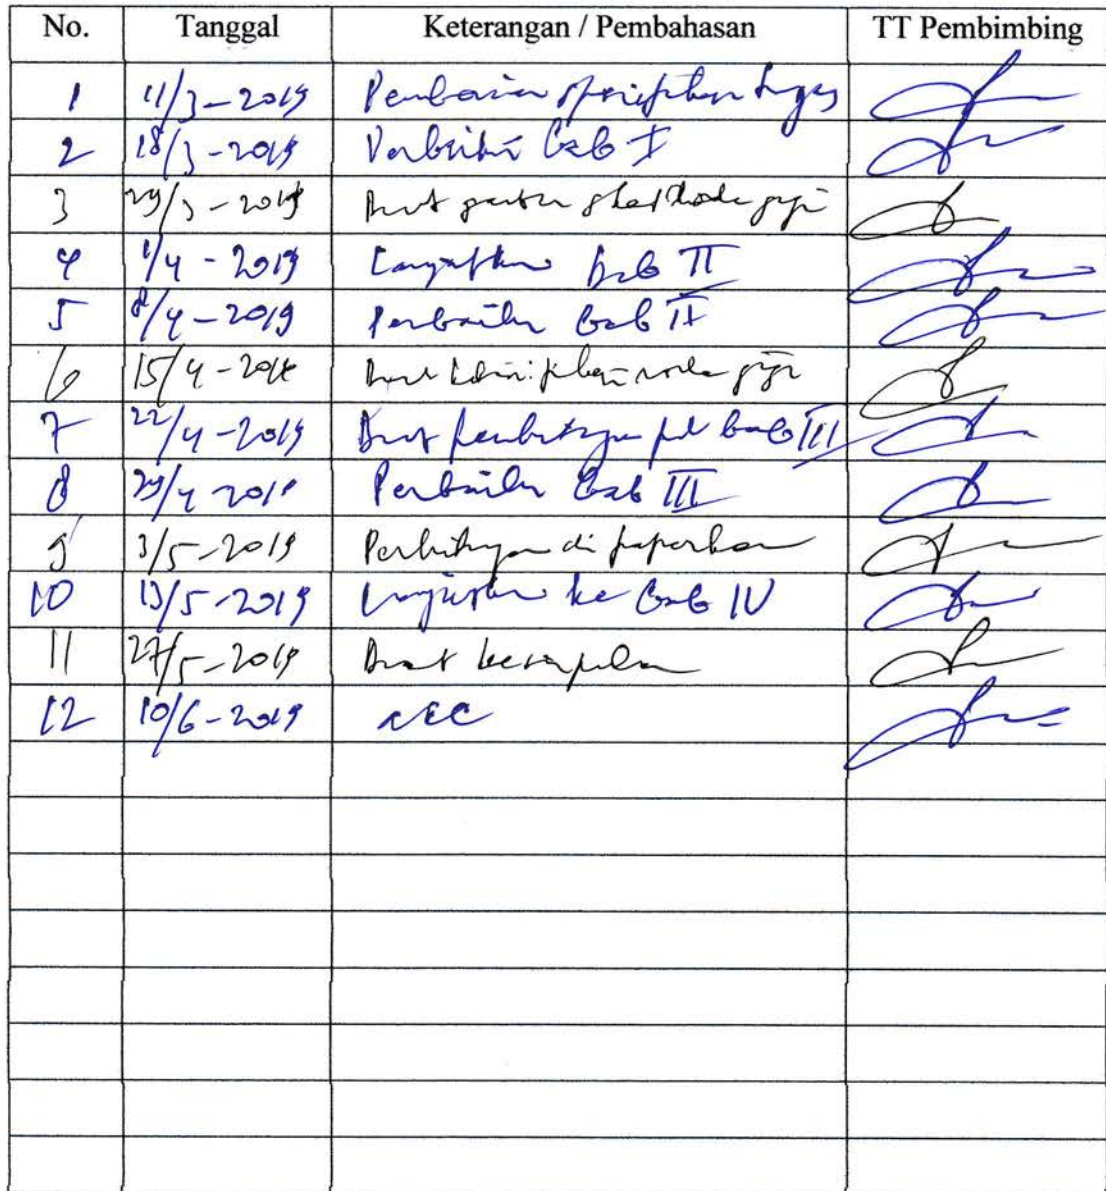 No. Tanggal Keterangan / Pembahasan TT Pembimbing
1 11/3-2019 Pemberian spesifikasi tugas
2 18/3-2019 Perbaiki Bab I
3 29/3-2019 Buat gambar sket roda gigi
4 1/4-2019 Lanjutkan Bab II
5 8/4-2019 Perbaiki Bab II
6 15/4-2019 Buat roda gigi
7 22/4-2019 Buat perhitungan pd Bab III
8 29/4-2019 Perbaiki Bab III
9 3/5-2019 Perhitungan di paparkan
10 13/5-2019 Lanjutkan ke Bab IV
11 27/5-2019 Buat kesimpulan
12 10/6-2019 ACC